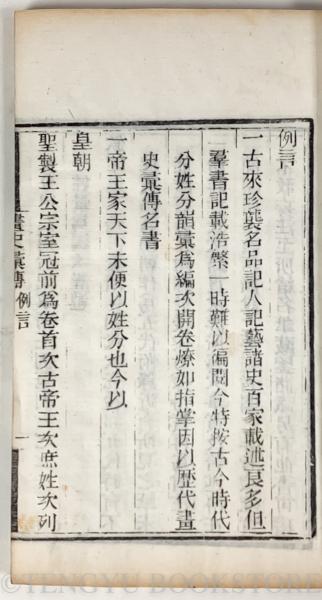 例言
一古來珍襲名品記人記藝諸史百家載述良多但
羣書記載浩繁一時難以徧閱今特按古今時代
分姓分韻彙爲編次開卷燎如指掌因以歷代畫
史彙傳名書
一帝王家天下未便以姓分也今以
皇朝
聖製王公宗室冠前爲卷首次古帝王次庶姓次列
畫史彙傳 例言
一
©TENGYU BOOKSTORE